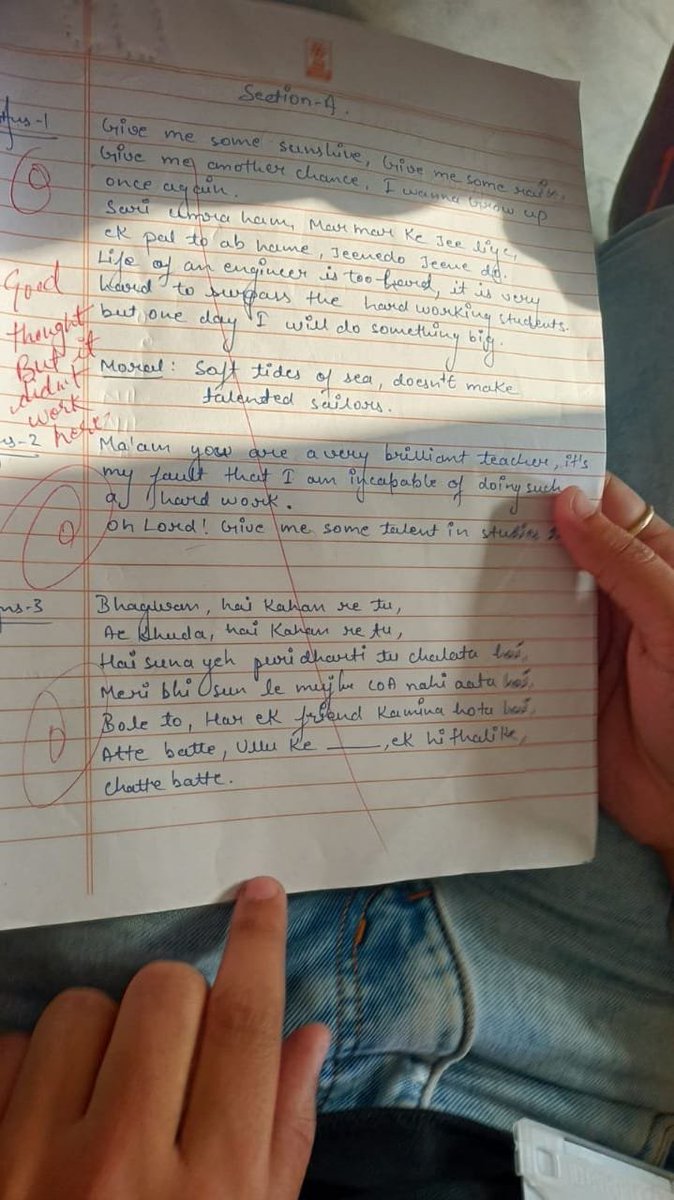 Section-A.
Ans-1
Give me some sunshine, Give me some rain,
Give me another chance, I wanna Grow up
once again.
Sari umra ham, Mar mar ke Jee liye,
ek pal to ab hame, Jeenedo Jeene do.
Life of an engineer is too hard, it is very
hard to surpass the hard working students.
but one day I will do something big.
Moral: Soft tides of sea, doesn't make
talented sailors.
0
Good
thought
But it
didn't
work
here
ns-2
Ma'am you are a very brilliant teacher, it's
my fault that I am incapable of doing such
a hard work.
oh Lord! Give me some talent in
0
ns-3
Bhagwan, hai Kahan re tu,
Ae Khuda, hai Kahan re tu,
Hai suna yeh puri dharti tu chalata hai,
Meri bhi sun le mujhe COA nahi aata hai,
Bole to, Har ek friend Kamina hota hai,
Atte batte, Ullu ke ___, ek hi thali ke,
chatte batte.
0